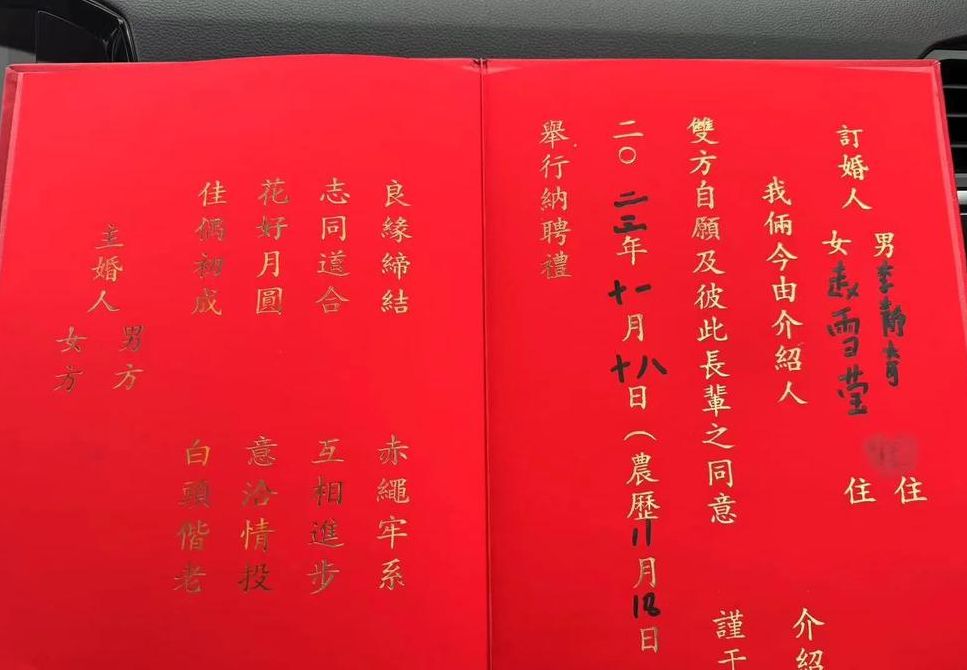 訂婚人
男 李静 住
女 赵雪莹 住
我倆今由介紹人 介紹
雙方自願及彼此長輩之同意 謹于
二〇二三年十一月十八日（農歷11月18日
舉行納聘禮
良緣締結 赤繩牢系
志同道合 互相進步
花好月圓 意洽情投
佳偶初成 白頭偕老
主婚人
男方
女方